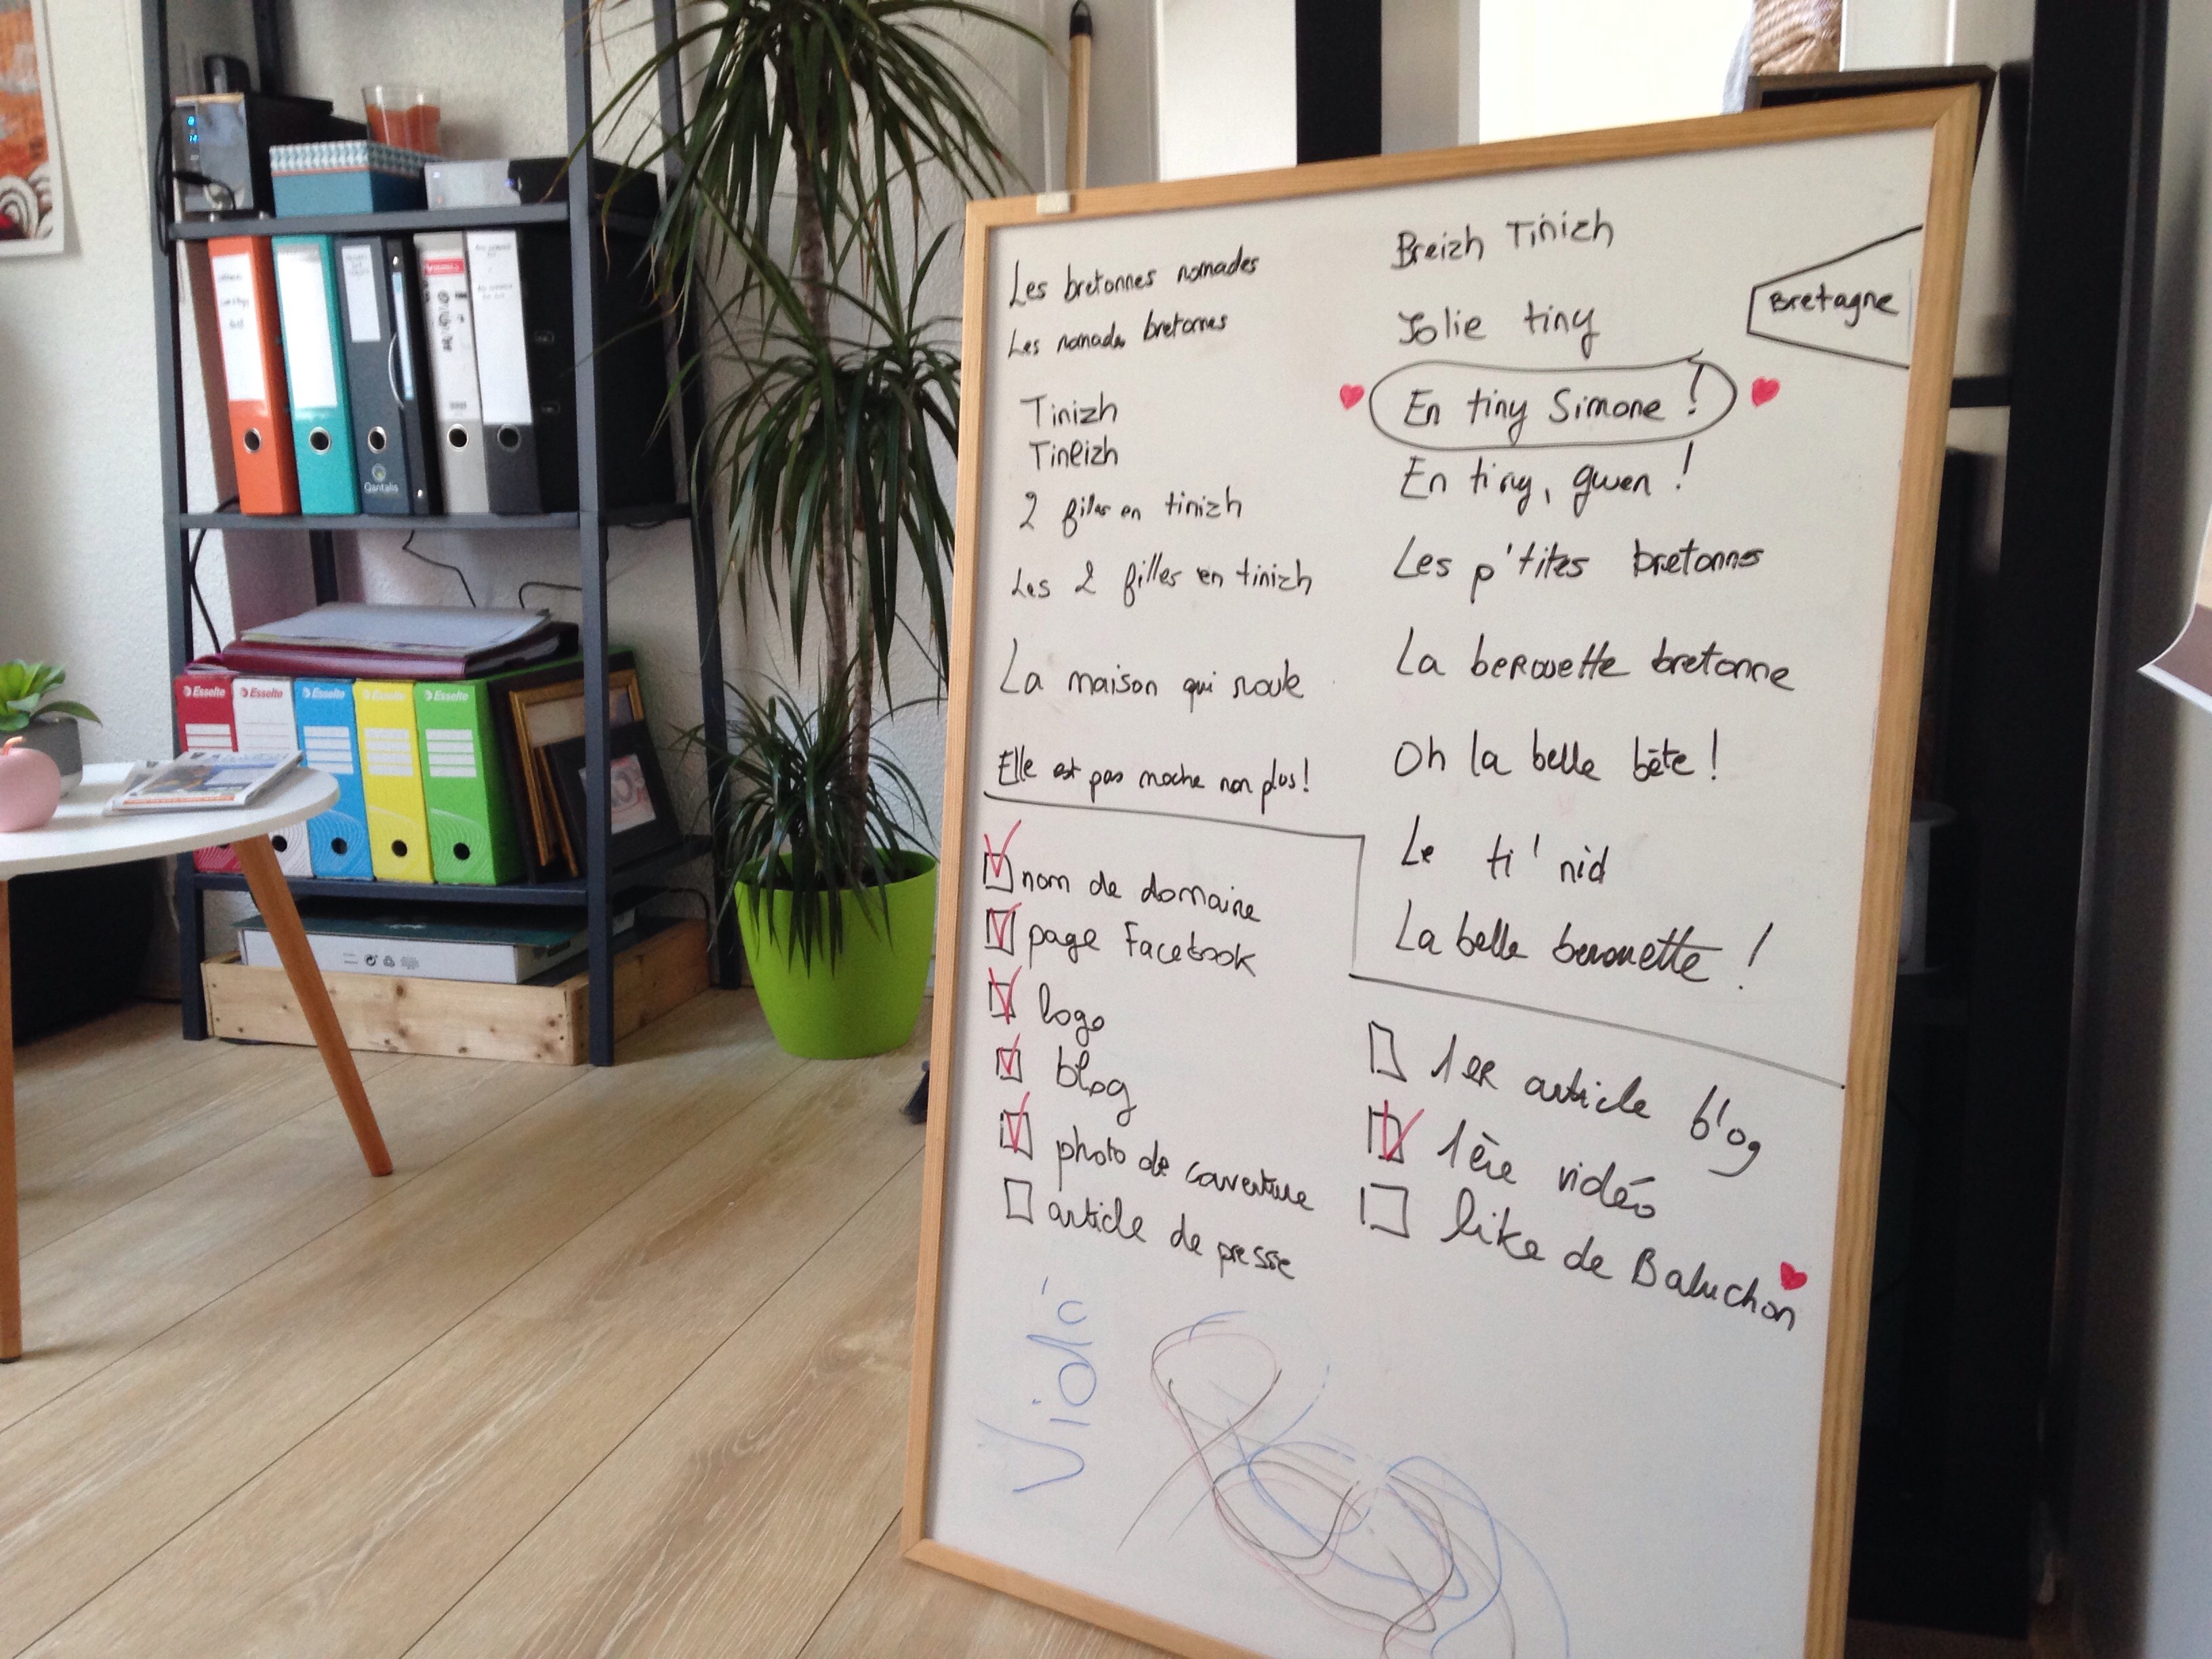 Les bretonnes nomades
Les nomades bretonnes
Tinizh
Tineizh
2 filles en tinizh
Les 2 filles en tinizh
La maison qui roule
Elle est pas moche non plus!
Breizh Tinizh
Jolie tiny
En tiny Simone !
En tiny, gwen !
Les p'tites bretonnes
La berouette bretonne
Oh la belle bête !
Le ti' nid
La belle berouette !
Bretagne
nom de domaine
page Facebook
logo
blog
photo de couverture
article de presse
1er article blog
1ère vidéo
like de Baluchon
Qantalis
Esselte
Esselte
Esselte
Esselte
Esselte